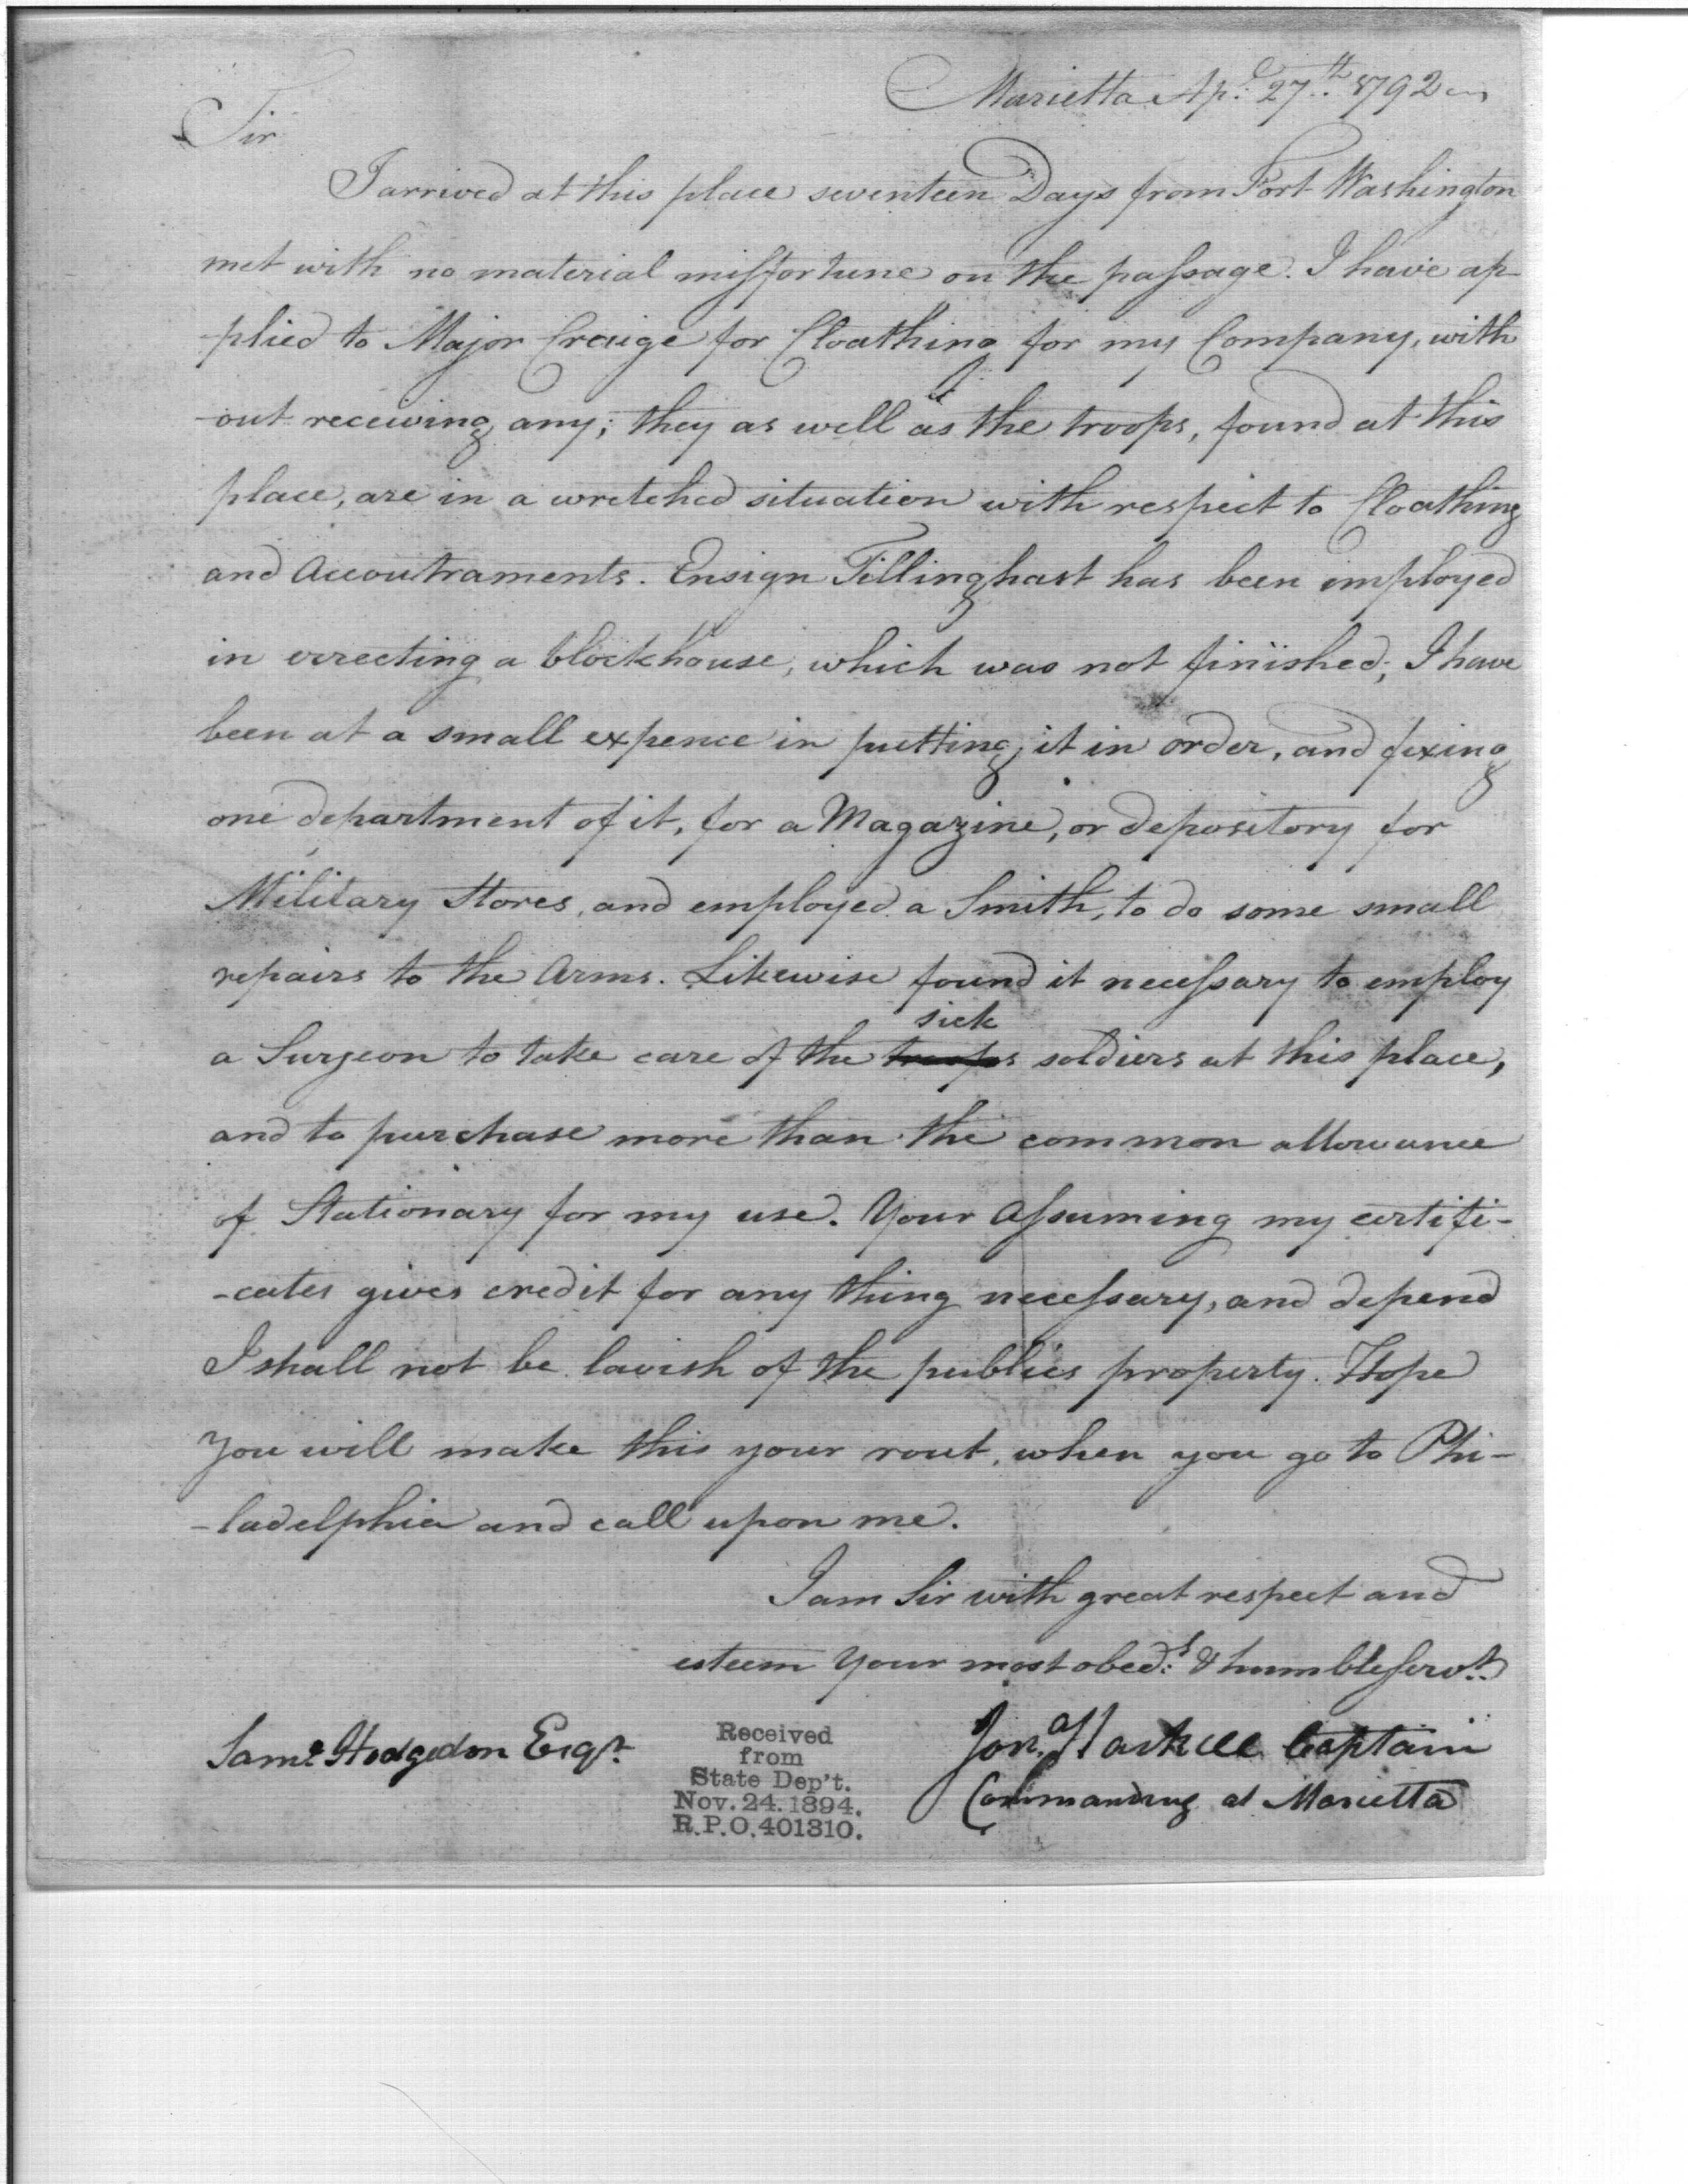 Marietta Apl. 27th. 1792
Sir
I arrived at this place seventeen Days from Fort Washington
met with no material missfortune on the passage. I have ap-
-plied to Major Craige for Cloathing for my Company, with
-out receiving any; they as well as the troops, found at this
place, are in a wretched situation with respect to Cloathing
and Accoutraments. Ensign Tillinghast has been employed
in errecting a blockhouse, which was not finished; I have
been at a small expence in putting it in order, and fixing
one department of it, for a Magazine, or depository for
Military Stores, and employed a Smith, to do some small
repairs to the Arms. Likewise found it necessary to employ
sick
a Surgeon to take care of the troops soldiers at this place,
and to purchase more than the common allowance
of Stationary for my use. Your Assuming my certifi-
-cates gives credit for any thing necessary, and depend
I shall not be lavish of the publics property. Hope
You will make this your rout, when you go to Phi-
-ladelphia and call upon me.
I am Sir with great respect and
esteem Your most obedt. & humble servt.
Jona. Haskell Captain
Commanding at Marietta
Saml. Hodgdon Esqr.
Received
from
State Dep't.
Nov. 24. 1894.
R.P.O. 401310.